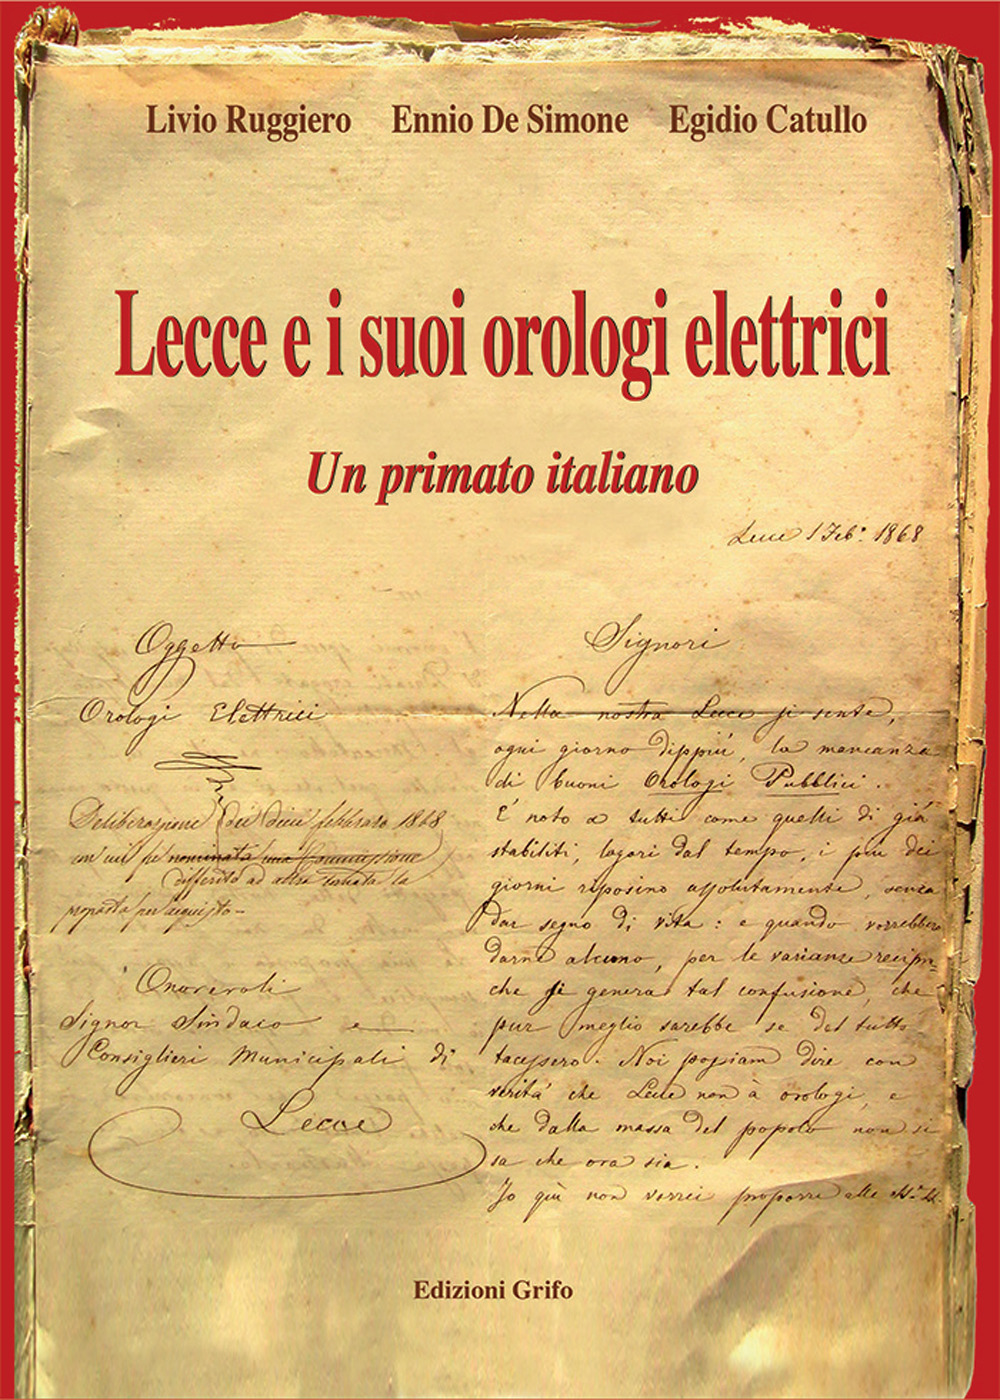 Livio Ruggiero Ennio De Simone Egidio Catullo
Lecce e i suoi orologi elettrici
Un primato italiano
Lecce 1 Feb.° 1868
Oggetto
Orologi Elettrici
Deliberazione del dieci febbraro 1868
con cui si nominata una Commissione
differita ad altra tornata la
proposta per acquisto
Onorevoli
Signor Sindaco e
Consiglieri Municipali di
Lecce
Signori
Nella nostra Lecce si sente,
ogni giorno dippiù, la mancanza
di buoni Orologi Pubblici.
È noto a tutti come quelli di già
stabiliti, logori dal tempo, i più dei
giorni riposino assolutamente, senza
dar segno di vita: e quando vorrebbero
darne alcuno, per le varianze recipro=
che si genera tal confusione, che
pur meglio sarebbe se del tutto
tacessero. Noi possiam dire con
verità che Lecce non à orologi, e
che dalla massa del popolo non si
sa che ora sia.
Io qui non vorrei proporre alle
Edizioni Grifo